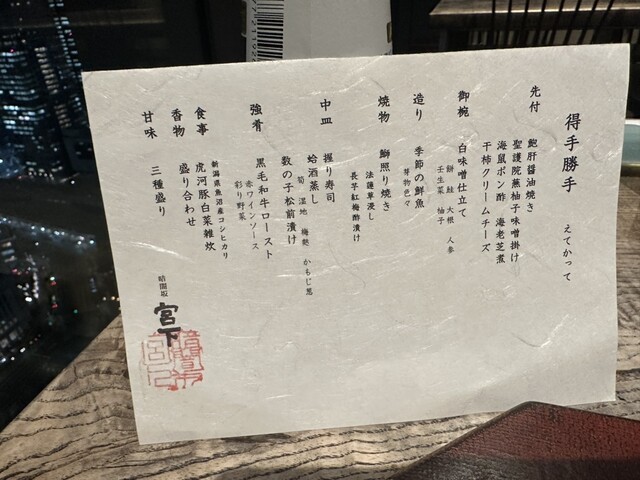 得手勝手 えてかって
先付
鮑肝醤油焼き
聖護院蕪柚子味噌掛け
海鼠ポン酢 海老芝煮
干柿クリームチーズ
御椀
白味噌仕立て
餅 鮭 大根 人参
壬生菜 柚子
造り
季節の鮮魚
芽物色々
焼物
鰤照り焼き
法蓮草浸し
長芋紅梅酢漬け
中皿
握り寿司
蛤酒蒸し
筍 湿地 梅麩 かもじ葱
数の子松前漬け
強肴
黒毛和牛ロースト
赤ワインソース
彩り野菜
食事
新潟県魚沼産コシヒカリ
虎河豚白菜雑炊
香物
盛り合わせ
甘味
三種盛り
暗闇坂
宮下